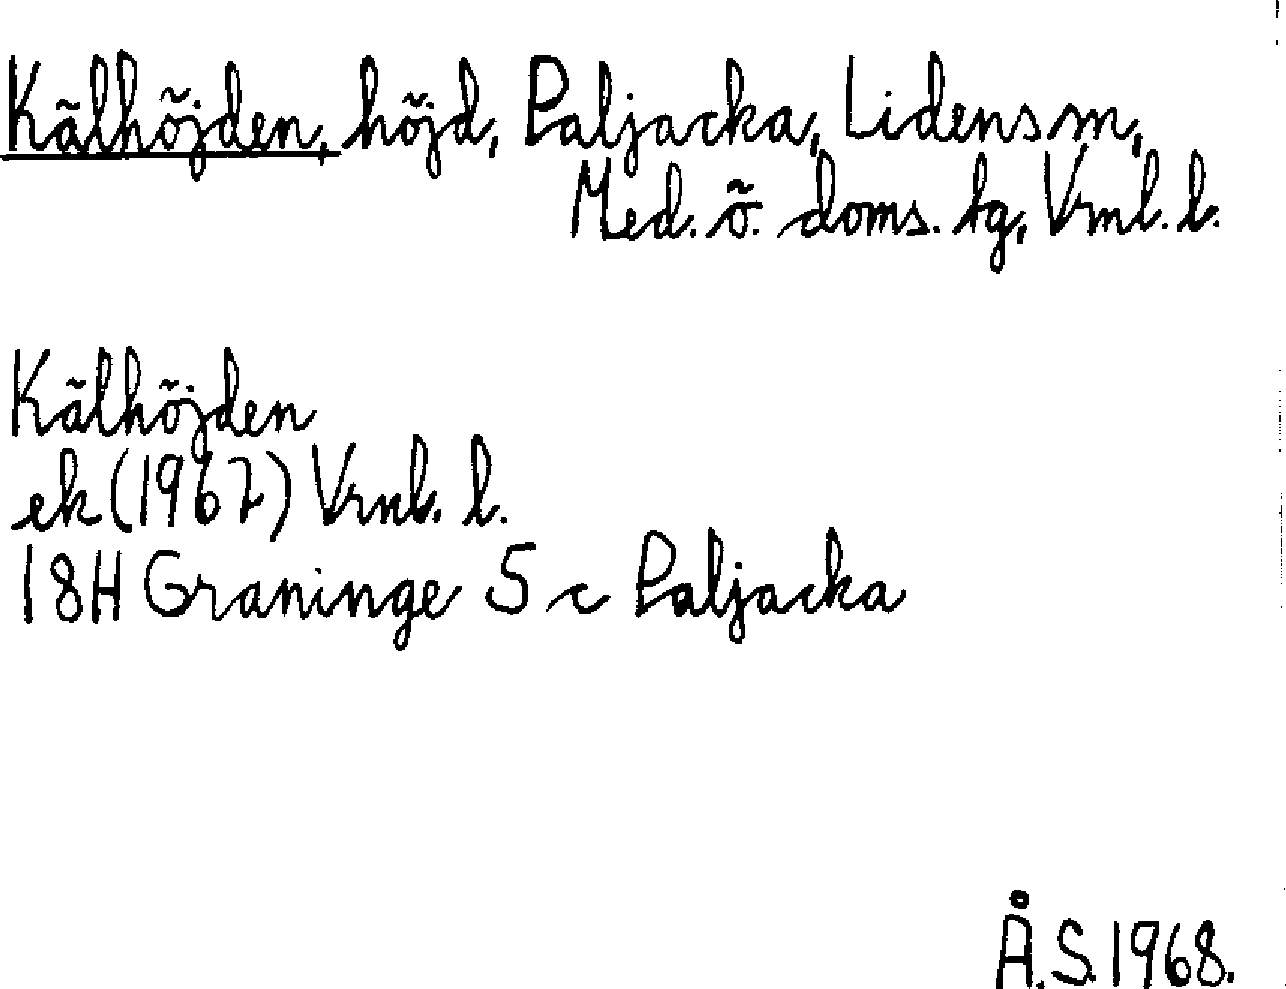 Kälhöjden, höjd, Paljacka, Lidens sn,
Med. ö. doms. tg, Vrnl. l.
Kälhöjden
ek (1967) Vrnl. l.
18H Graninge 5 c Paljacka
Å.S. 1968.